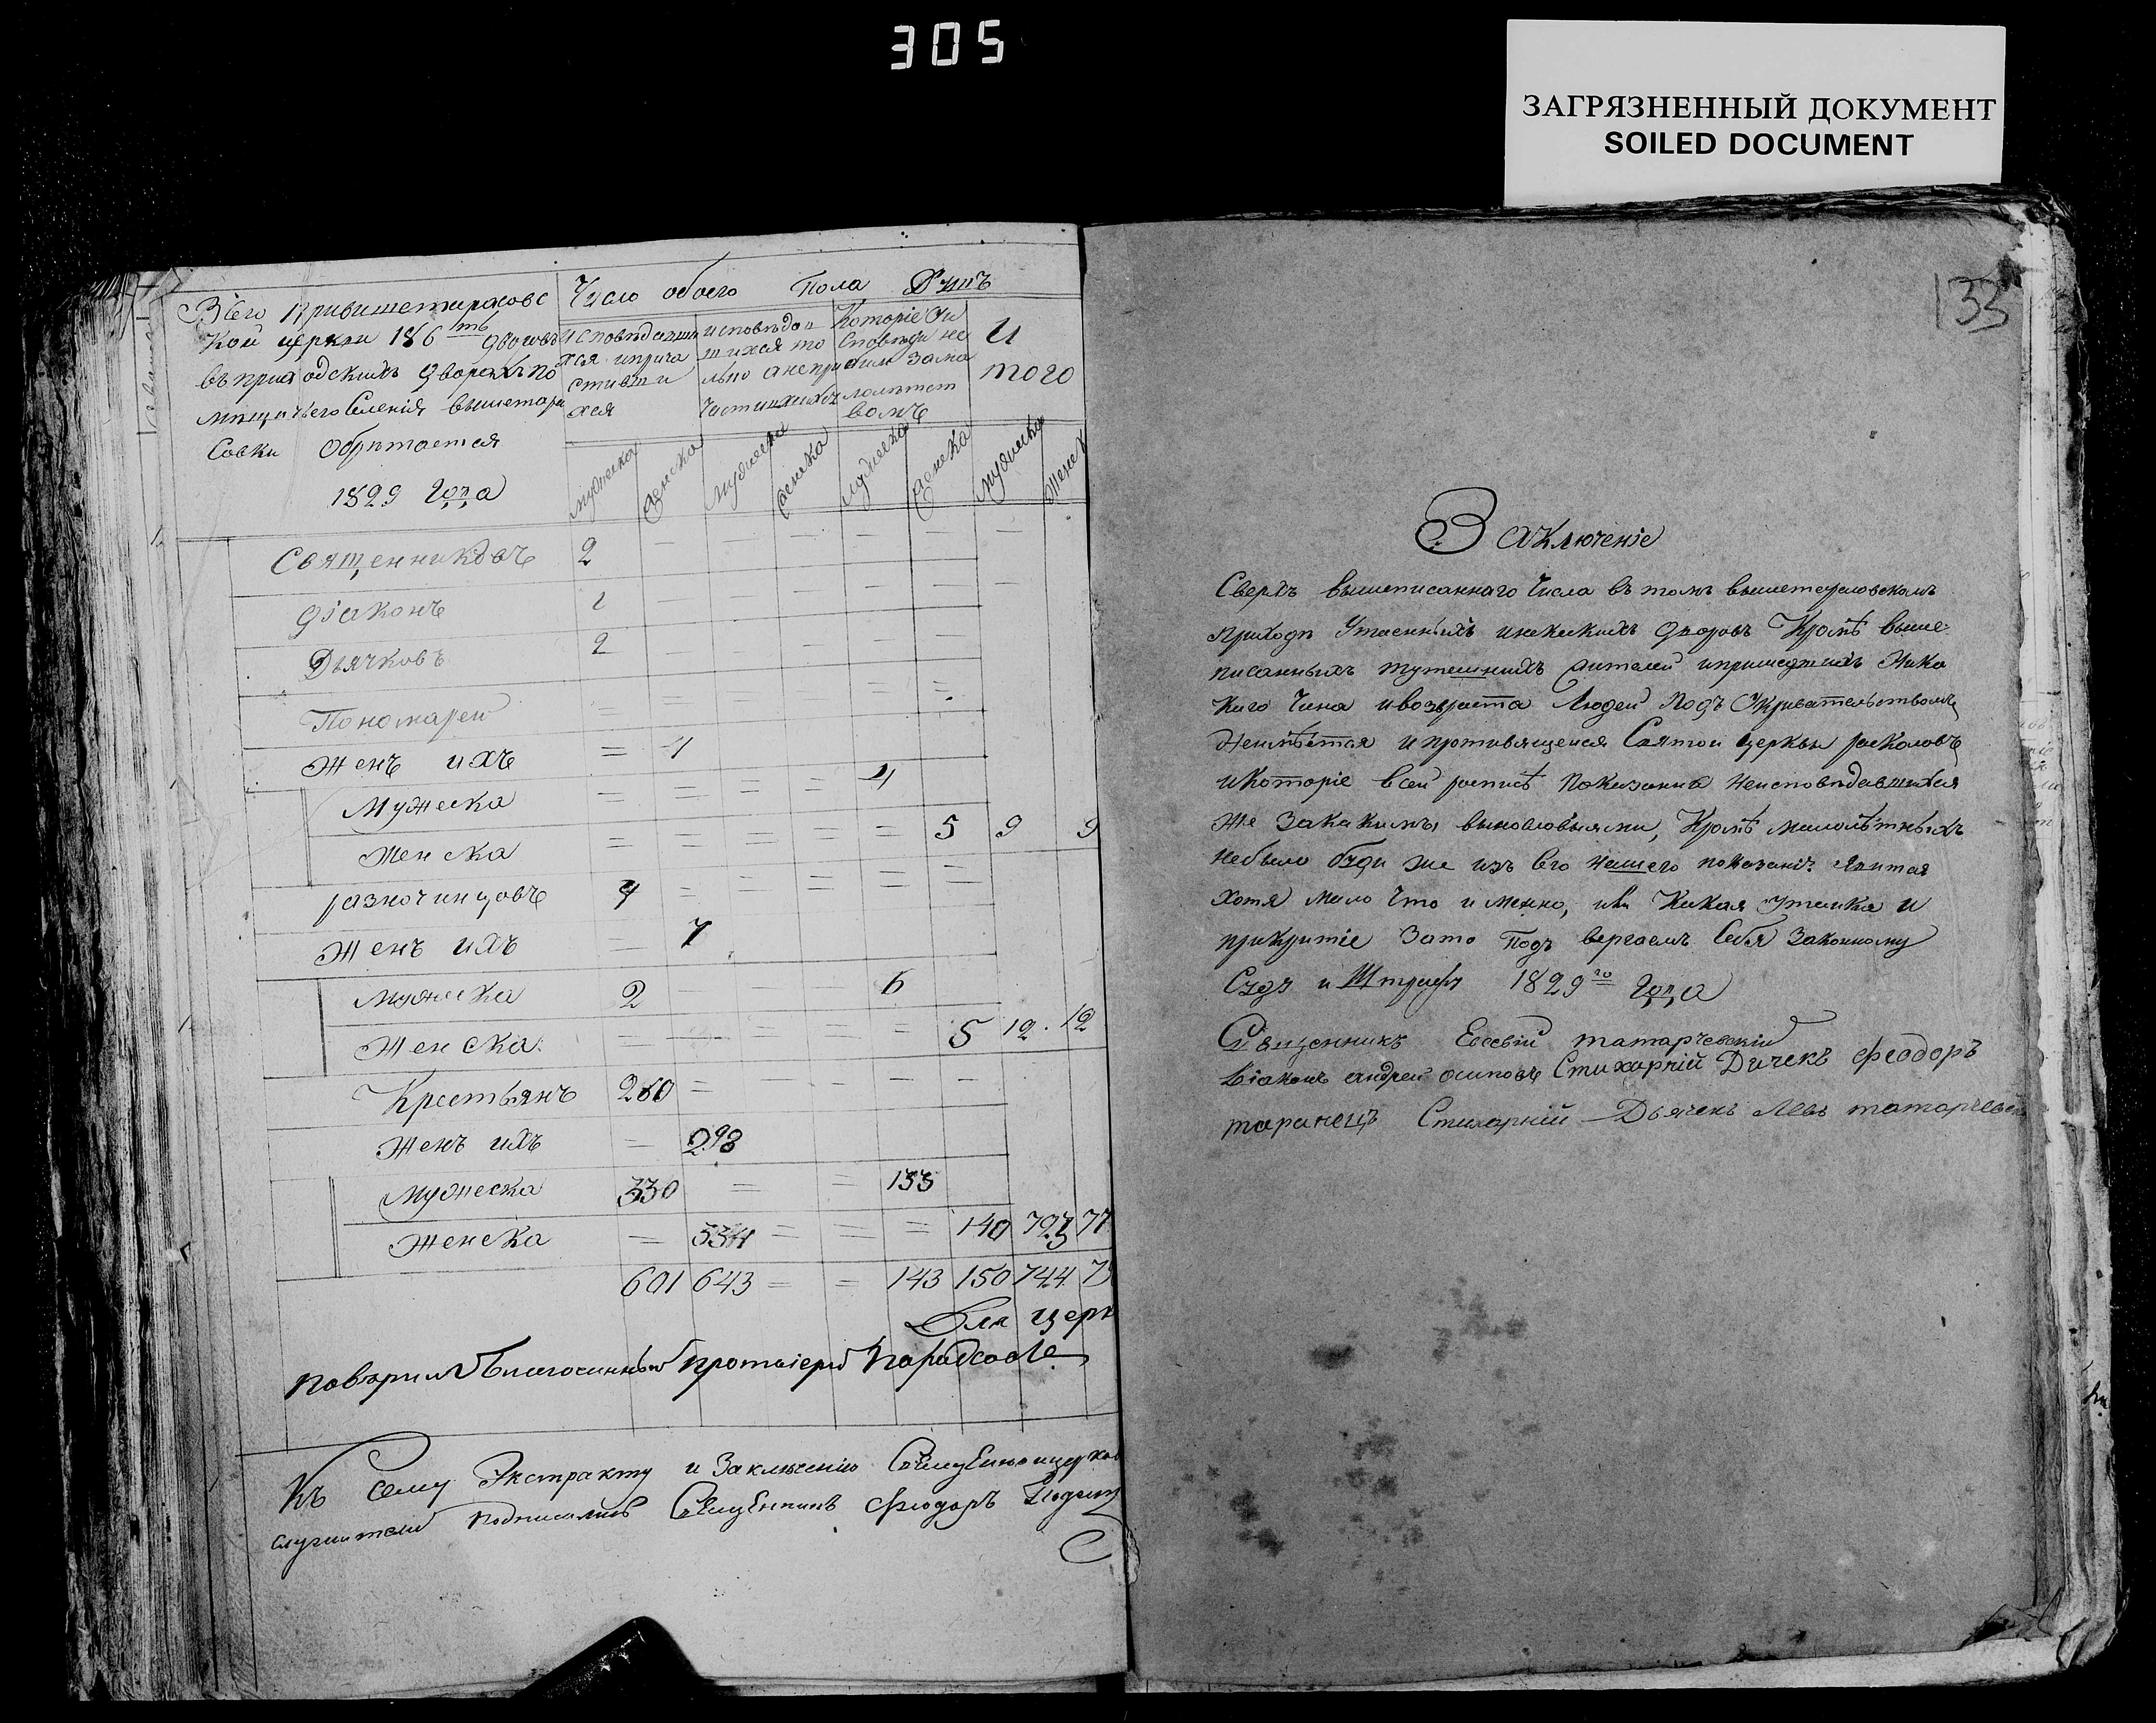 305
ЗАГРЯЗНЕННЫЙ ДОКУМЕНТ
SOILED DOCUMENT
133
Всего Привишетарасовс
кой церкви 186 ть дворовъ
въ приходскихъ дворахъ по
мещичьего Селенія вышетара
совки Обрѣтается
1829 Года
Число обоего Пола Душъ
Исповѣдавши
хся и прича
стивши
хся
исповѣдав
шихся то
лько а непри
частившихся
Которіе Ои
сповѣди не
были за ма
лолѣтст
вомъ
И
того
мужеска женска мужеска женска мужеска женска мужеска женск
Священниковъ 2 — — — — — — —
діаконъ 1
Дьячковъ 2
Пономарей
Женъ ихъ = 4
Мужеска = = = = 4
Женска = = = = = 5 9 9
разночинцовъ 4
Женъ ихъ — 7
Мужеска 2 6
Женска — — = = = 5 12. 12
Крестьянъ 260 = — — —
Женъ ихъ — 298
Мужеска 330 = = 133
Женска — 334 = = = 140 723 77
601 643 = = 143 150 744 7
Для церк
Поверилъ Благочинный протоіерей
Къ сему Экстракту и Заключенію Священноцерков
служители подписались Священникъ Феодоръ
Заключеніе
Сверхъ вышеписаннаго Числа въ томъ вышетарасовскомъ
приходѣ Утаенныхъ инекакихъ дворовъ Кромѣ выше
писанныхъ тутешнихъ жителей ипришедшихъ Ника
кого Чина ивозраста Людей Подъ Укривательствомъ
Неимѣется и противящейся Святои Церкви расколовъ
иКоторіе всей росписѣ Показанна неисповѣдавшихся
Же Закакимъ выновловыями, Кромѣ малолѣтныхъ
небыло буди же изъ Сего нашего показанія явится
хотя мало что и менно, или Какая утайка и
прикритіе Зато Подъ вергаемъ Себя Законному
Суду и Штрафу 1829 го Года
Священникъ Евсевій татарчевскій
Діаконъ андрей осиповъ Стихарній Дичекъ феодоръ
таранецъ Стихарній Дьячекъ Левъ татарчевск